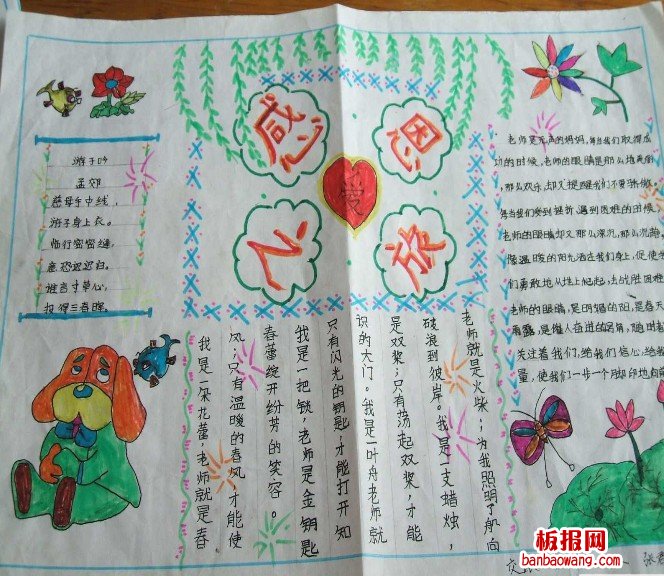 感恩
爱
之旅
游子吟
孟郊
慈母手中线，
游子身上衣。
临行密密缝，
意恐迟迟归。
谁言寸草心，
报得三春晖。
我是一朵花蕾，老师就是春
风；只有温暖的春风，才能使
春蕾绽开纷芳的笑容。
我是一把锁，老师是金钥匙
只有闪光的钥匙，才能打开知
识的大门。我是一叶舟老师就
是双桨；只有荡起双桨，才能
破浪到彼岸。我是一支蜡烛，
老师就是火柴；为我照明了航向
老师是无声的妈妈，每当我们取得成
功的时候，老师的眼睛是那么地美丽
，那么欢乐，却又提醒我们不要骄傲，
每当我们受到挫折遇到困难的时候，
老师的眼睛却又那么深沉，那么沉静。
像温暖的阳光洒在我们身上，促使
们勇敢地从地上爬起，去战胜困难
老师的眼睛，是明媚的阳，是春天
雨露，是催人奋进的号角，随时
关注着我们，给我们信心，给我
量，使我们一步一个脚印地向前
板报网
banbaowang.com